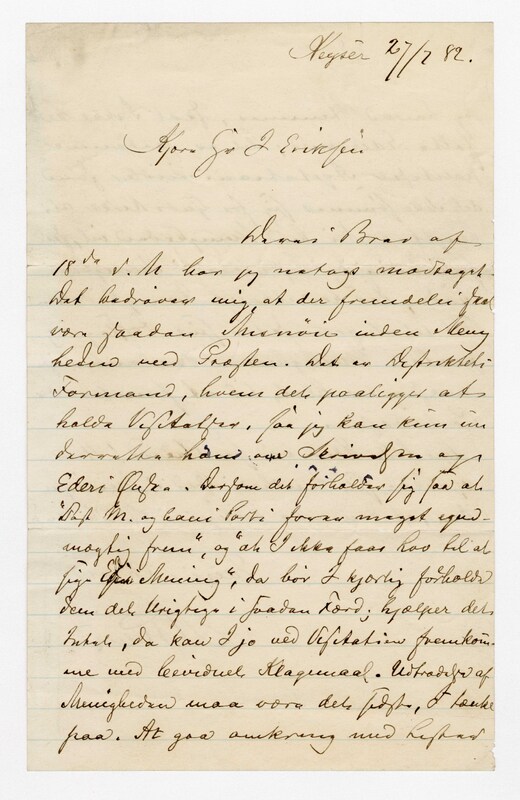 Keyser 27/7 82.
Kjære Hr J Eriksen
Deres Brev af
18de d. M har jeg netop modtaget.
Det bedrøver mig, at der fremdeles skal
være saadan Misnøie inden Menig
heden med Præsten. Det er Destriktets
Formand, hvem det paaligger at
holde Visitatser, saa jeg kan kun un
derrette ham om Skrivelsen og
Eders Ønske. Dersom det forholder sig saa at
"Past M. og hans Parti farer meget egen-
mægtig frem", og "at I ikke faar Lov til at
sige Eders Mening", da bør I kjærlig foreholde
dem det Urigtige i saadan Færd; hjælper det
Intet, da kan I jo ved Visitatien fremkom-
me med beviduet Klagemaal. Udtrædelse af
Menigheden maa være det sidste, I tænke
paa. At gaa omkring med Lister